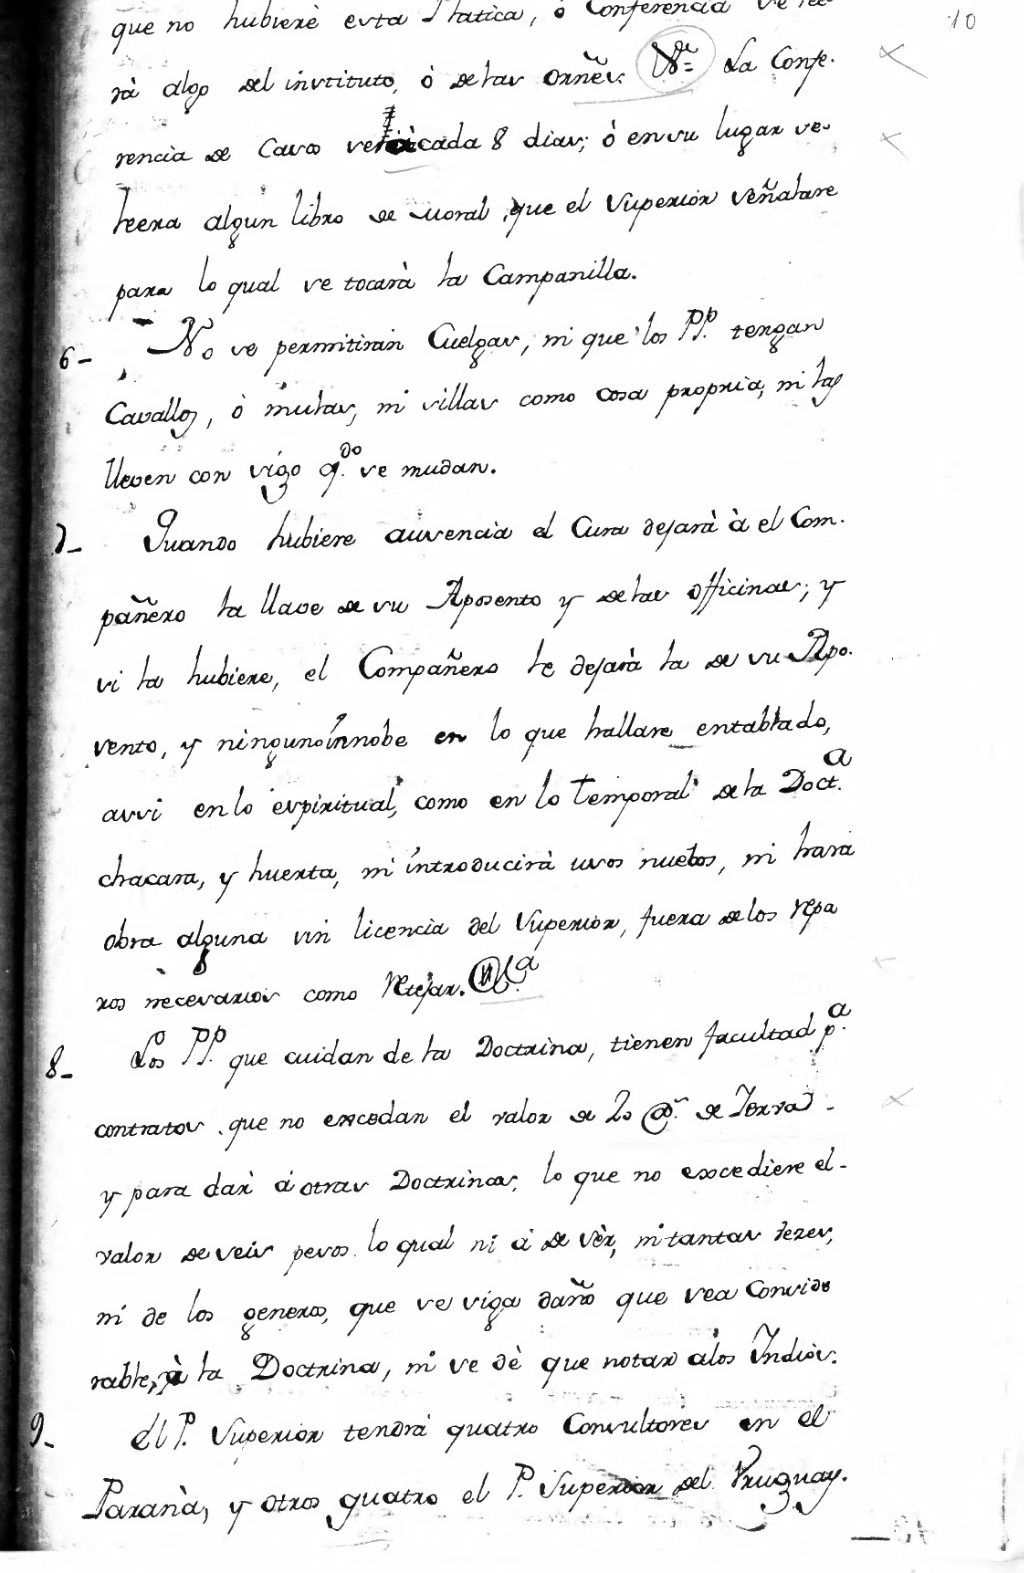 10
que no hubiere esta Platica, ò Conferencia se lee-
rà algo del instituto, ò de las orñes. La Confe-
rencia de Casos será cada 8 dias; ò en su lugar se
leera algun libro de Moral, que el Superior señalare
para lo qual se tocarà la Campanilla.
6- No se permitiràn Cuelgas, ni que los PP. tengan
Cavallos, ò mulas, ni sillas como cosa propria, ni las
lleven con sigo q.do se mudan.
7- Quando hubiere ausencia el Cura dejarà à el Com-
pañero la llave de su Aposento y de las officinas; y
si la hubiere, el Compañero le dejarà la de su Apo-
sento, y ninguno innobe en lo que hallare entablado,
assi en lo espiritual, como en lo temporal de la Doct.a
chacara, y huerta, ni introducirà usos nuebos, ni harà
obra alguna sin licencia del Superior, fuera de los repa
ros necesarios como Retejar.
8- Los PP. que cuidan de la Doctrina, tienen facultad p.a
contratos que no excedan el valor de 20 @.s de Ierva -
y para dar à otras Doctrinas, lo que no excediere el-
valor de seis pesos. lo qual ni à de sèr, ni tantas vezes,
ni de los generos, que se siga daño que sea Conside
rable, à la Doctrina, ni se dè que notar a los Indios.
9- El P. Superior tendrà quatro Consultores en el
Paranà, y otros quatro el P. Superior del Vruguay.